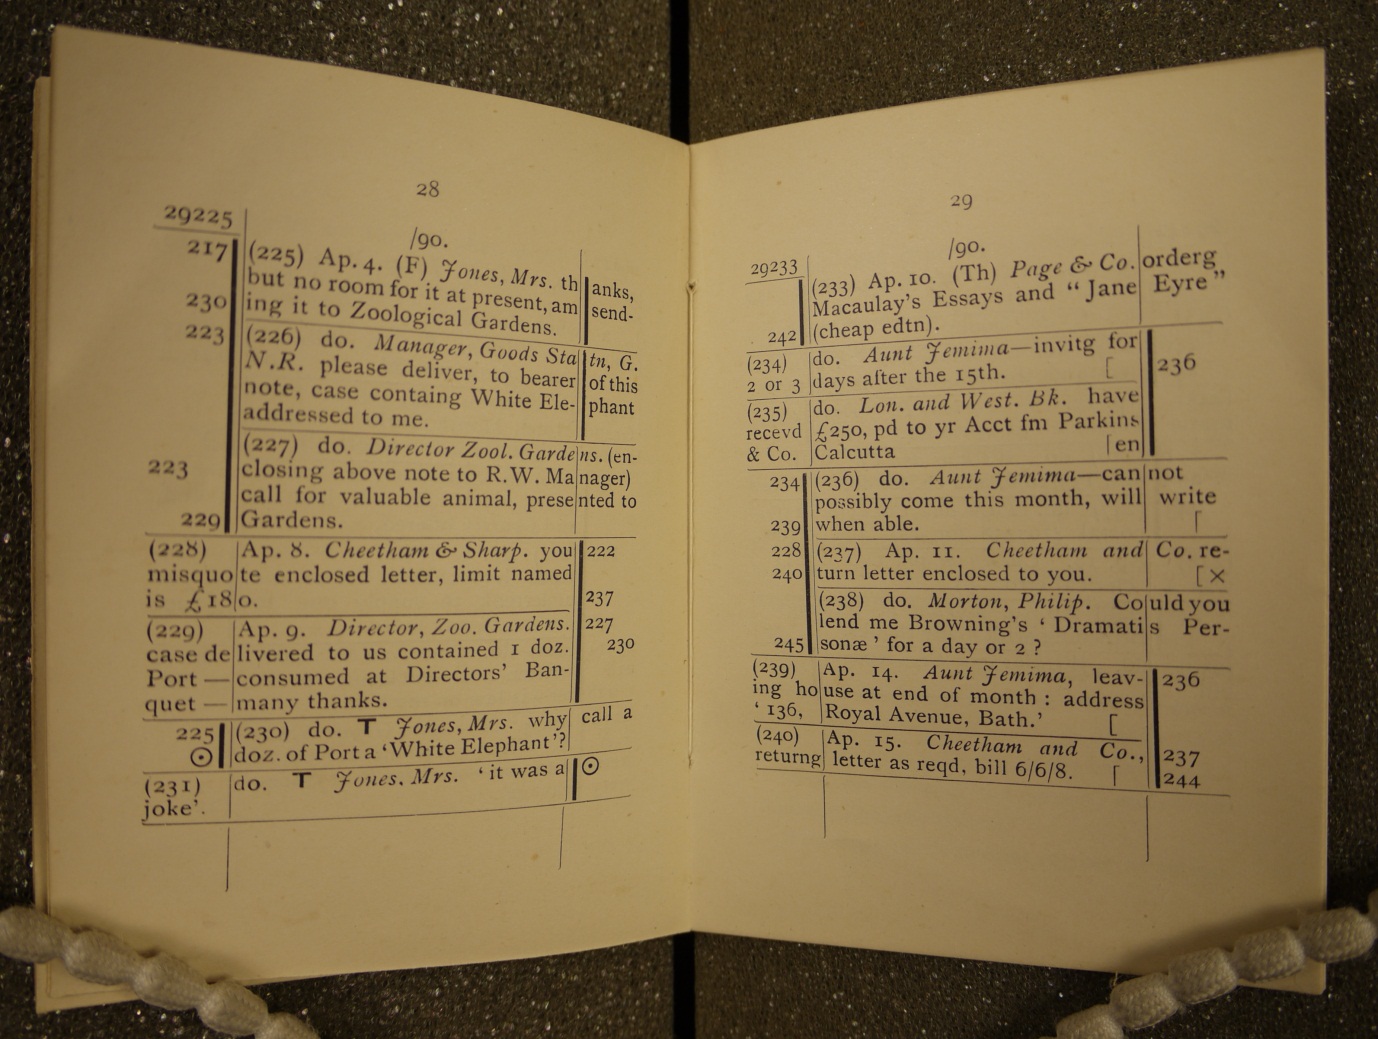 28
29225
/90.
217 (225) Ap. 4. (F) Jones, Mrs. th anks,
but no room for it at present, am send-
230 ing it to Zoological Gardens.
223 (226) do. Manager, Goods Sta tn, G.
N.R. please deliver, to bearer of this
note, case containg White Ele- phant
addressed to me.
(227) do. Director Zool. Gardens. (en-
223 closing above note to R.W. Manager)
call for valuable animal, presented to
229 Gardens.
(228) Ap. 8. Cheetham & Sharp. you 222
misquote enclosed letter, limit named
is £180. 237
(229) Ap. 9. Director, Zoo. Gardens. 227
case delivered to us contained 1 doz. 230
Port — consumed at Directors' Ban-
quet — many thanks.
225 (230) do. T Jones, Mrs. why call a
⊙ doz. of Port a ‘White Elephant’?
(231) do. T Jones, Mrs. ‘it was a ⊙
joke’.
29
/90.
29233 (233) Ap. 10. (Th) Page & Co. orderg
Macaulay's Essays and “Jane Eyre”
242 (cheap edtn).
(234) do. Aunt Jemima—invitg for 236
2 or 3 days after the 15th. [
(235) do. Lon. and West. Bk. have
recevd £250, pd to yr Acct fm Parkins
& Co. Calcutta [en
234 (236) do. Aunt Jemima—cannot
possibly come this month, will write
239 when able. [
228 (237) Ap. 11. Cheetham and Co. re-
240 turn letter enclosed to you. [×
(238) do. Morton, Philip. Could you
lend me Browning's ‘Dramatis Per-
245 sonæ’ for a day or 2?
(239) Ap. 14. Aunt Jemima, leav- 236
ing house at end of month: address
‘136, Royal Avenue, Bath.’ [
(240) Ap. 15. Cheetham and Co., 237
returng letter as reqd, bill 6/6/8. [ 244